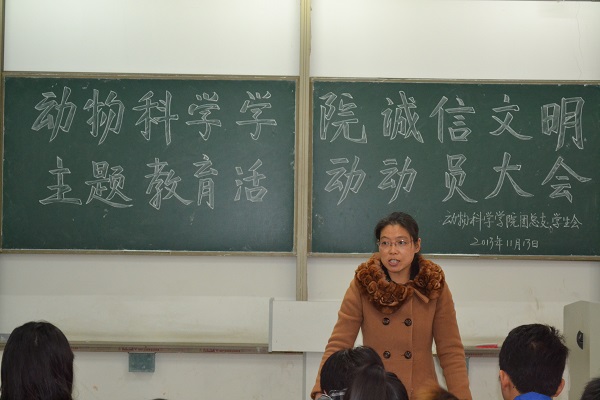 动物科学学院诚信文明
主题教育活动动员大会
动物科学学院团总支、学生会
2013年11月13日